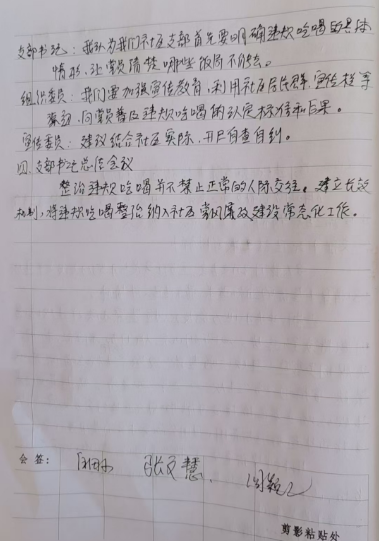 支部书记：我认为我们社区支部首先要明确违规吃喝的具体
情形，让党员清楚哪些饭局不能去。
组织委员：我们要加强宣传教育，利用社区居民群、宣传栏等
渠道，向党员普及违规吃喝的认定标准和后果。
宣传委员：建议结合社区实际，开展自查自纠。
四、支部书记总结会议
整治违规吃喝并不禁止正常的人际交往。建立长效
机制，将违规吃喝整治纳入社区党风廉政建设常态化工作。
会签：
张文慧
剪影粘贴处